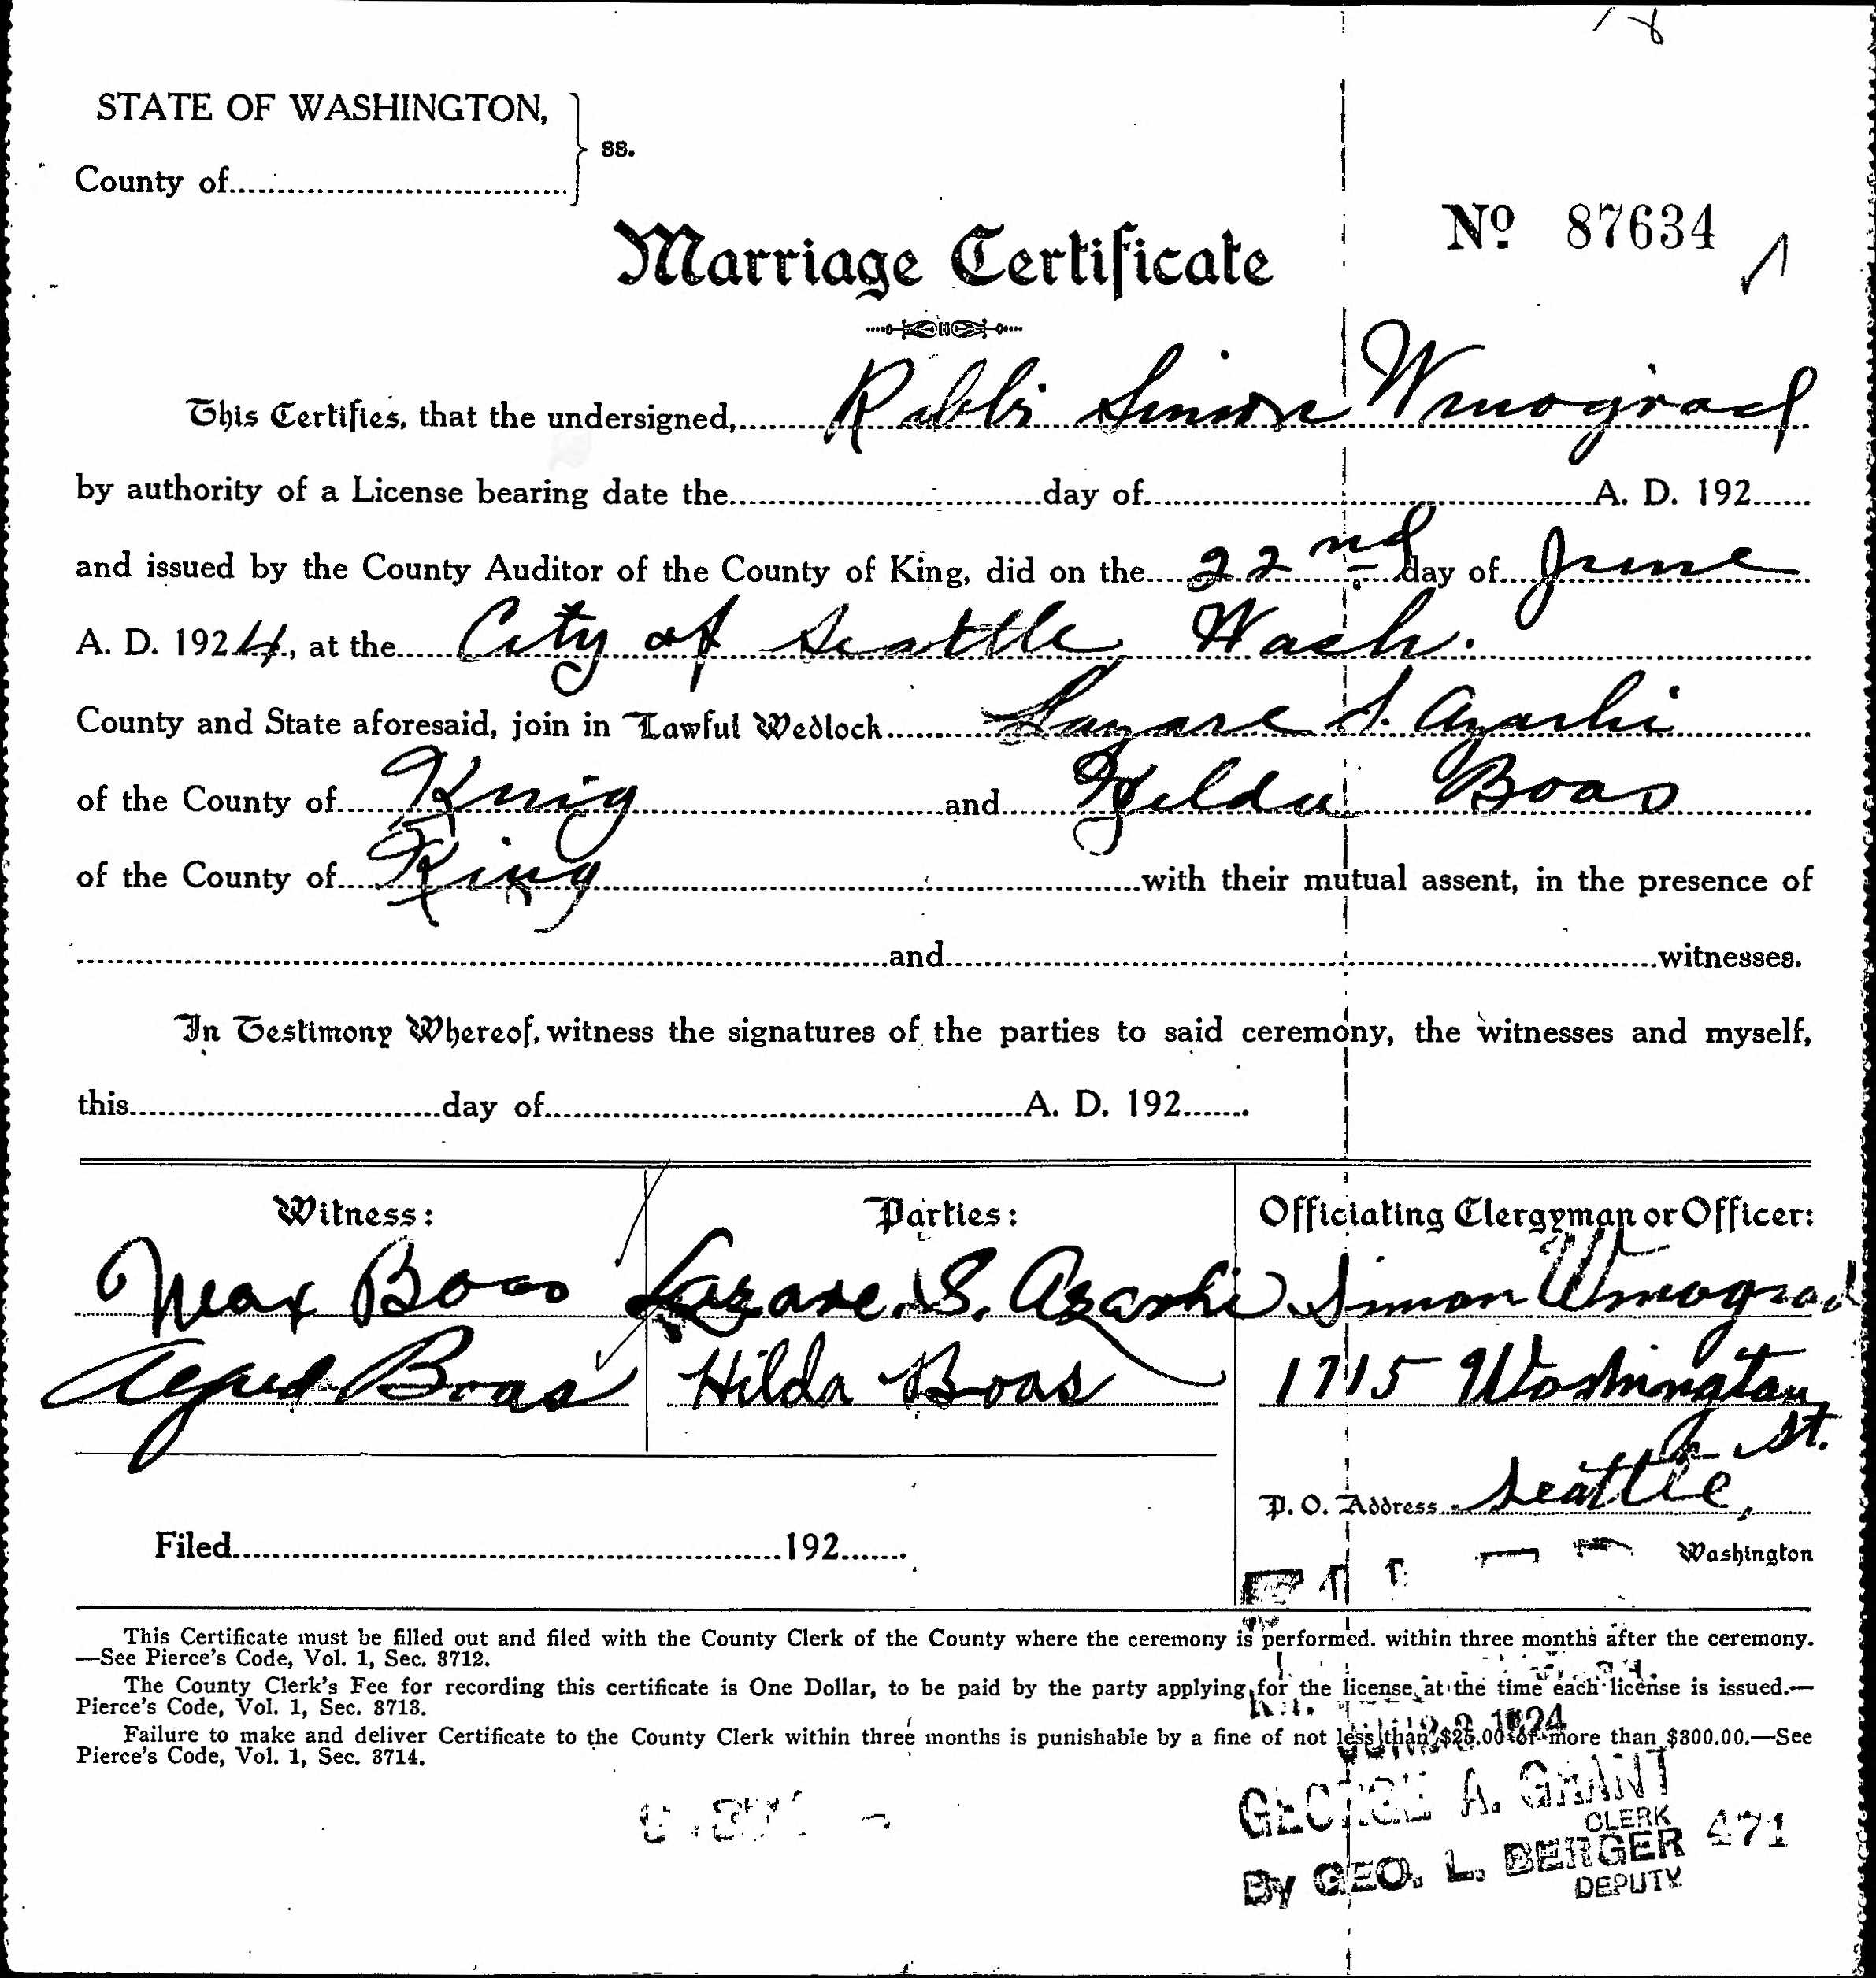 STATE OF WASHINGTON,
ss.
County of
No 87634
Marriage Certificate
This Certifies, that the undersigned, Rabbi Simon Winograd
by authority of a License bearing date the day of A. D. 192
and issued by the County Auditor of the County of King, did on the 22nd day of June
A. D. 1924, at the City of Seattle, Wash.
County and State aforesaid, join in Lawful Wedlock Lazare S. Azarhi
of the County of King and Hilda Boas
of the County of King with their mutual assent, in the presence of
and witnesses.
In Testimony Whereof, witness the signatures of the parties to said ceremony, the witnesses and myself,
this day of A. D. 192
Witness: Parties: Officiating Clergyman or Officer:
Max Boas Lazare S. Azarhi Simon Winograd
Boas Hilda Boas 1715 Washington
St.
P. O. Address Seattle,
Filed 192 Washington
This Certificate must be filled out and filed with the County Clerk of the County where the ceremony is performed. within three months after the ceremony.
—See Pierce's Code, Vol. 1, Sec. 3712.
The County Clerk's Fee for recording this certificate is One Dollar, to be paid by the party applying for the license at the time each license is issued.—
Pierce's Code, Vol. 1, Sec. 3713.
Failure to make and deliver Certificate to the County Clerk within three months is punishable by a fine of not less than $25.00 or more than $300.00.—See
Pierce's Code, Vol. 1, Sec. 3714.
1924
GEORGE A. GRANT
CLERK
By GEO. L. BERGER 471
DEPUTY